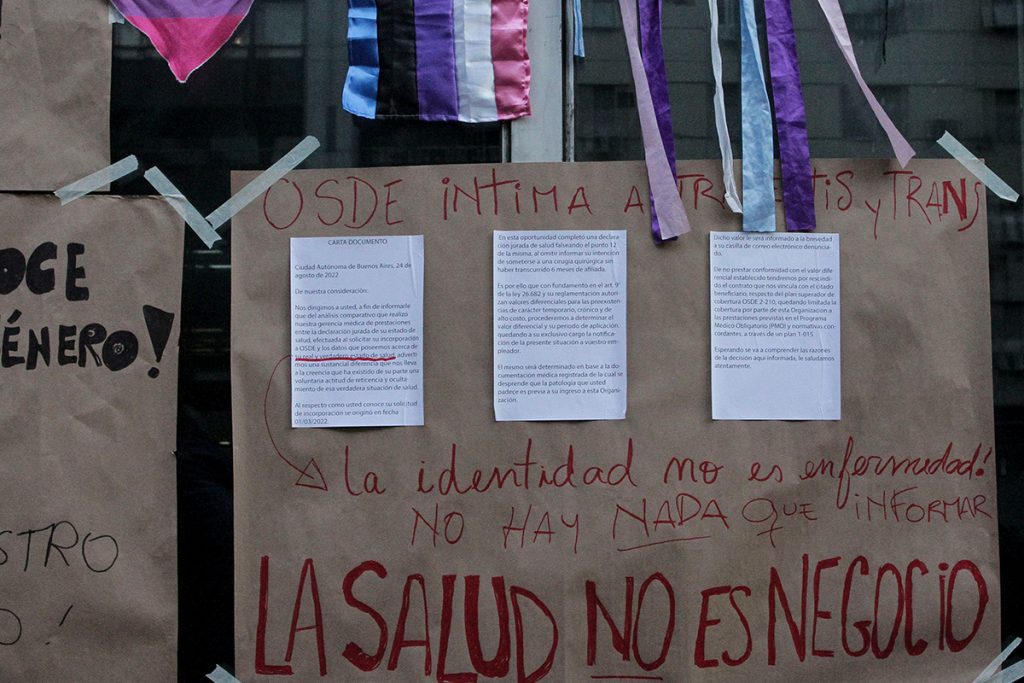 OCE
ÉNERO!
STRO
O!
OSDE INTIMA A TRAVESTIS y TRANS
CARTA DOCUMENTO
Ciudad Autónoma de Buenos Aires, 24 de
agosto de 2022
De nuestra consideración:
Nos dirigimos a usted, a fin de informarle
que del análisis comparativo que realizó
nuestra gerencia médica de prestaciones
entre la declaración jurada de su estado de
salud, efectuada al solicitar su incorporación
a OSDE y los datos que poseemos acerca de
su real y verdadero estado de salud, adverti-
mos una sustancial diferencia que nos lleva
a la creencia que ha existido de su parte una
voluntaria actitud de reticencia y oculta
miento de esa verdadera situación de salud.
Al respecto como usted conoce su solicitud
de incorporación se originó en fecha
01/03/2022.
En esta oportunidad completó una declara
ción jurada de salud falseando el punto 12
de la misma, al omitir informar su intención
de someterse a una cirugía quirúrgica sin
haber transcurrido 6 meses de afiliada.
Es por ello que con fundamento en el art. 9°
de la ley 26.682 y su reglamentación autori
zan valores diferenciales para las preexisten-
cias de carácter temporario, crónico y de
alto costo, procederemos a determinar el
valor diferencial y su periodo de aplicación,
quedando a su exclusivo cargo la notifica-
ción de la presente situación a vuestro em-
pleador.
El mismo será determinado en base a la do-
cumentación médica registrada de la cual se
desprende que la patología que usted
padece es previa a su ingreso a esta Organi-
zación.
Dicho valor le será informado a la brevedad
a su casilla de correo electrónico denuncia-
do.
De no prestar conformidad con el valor dife
rencial establecido tendremos por rescindi-
do el contrato que nos vincula con el citado
beneficiario, respecto del plan superador de
cobertura OSDE 2-210, quedando limitada la
cobertura por parte de esta Organización a
las prestaciones previstas en el Programa
Médico Obligatorio (PMO) y normativas con-
cordantes, a través de un plan 1-015.
Esperando se va a comprender las razones
de la decisión aquí informada, le saludamos
atentamente.
La identidad no es enfermedad!
NO HAY NADA QUE INFORMAR
LA SALUD NO ES NEGOCIO